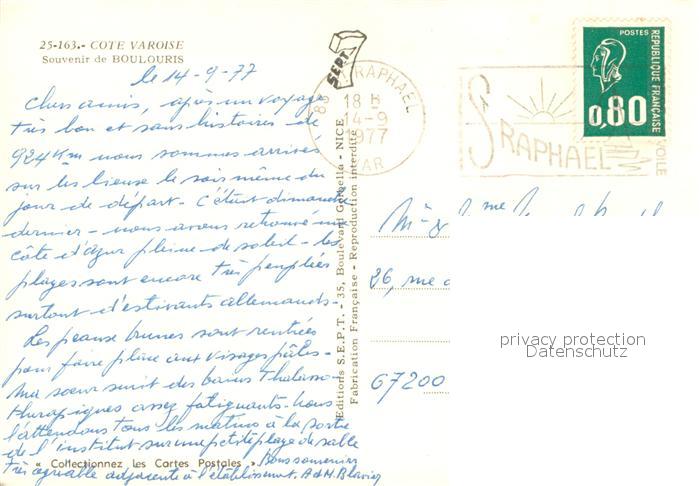 25-163.- COTE VAROISE
Souvenir de BOULOURIS
le 14-9-77
Chers amis, après un voyage
très bon et sans histoires de
924 Km nous sommes arrivés
sur les lieux le soir même du
jour de départ - C'était dimanche
dernier - nous avons retrouvé une
côte d'azur pleine de soleil - les
plages sont encore très peuplées
surtout d'estivants allemands -
Les peaux brunes sont rentrées
pour faire place aux visages pâles -
Ma sœur suit des bains Thalasso-
thérapiques assez fatiguants - nous
l'attendons tous les matins à la sortie
de l'institut sur une petite plage de sable
très agréable adjacente à l'établissement.
Bons souvenirs
A et H. Blavier
« Collectionnez les Cartes Postales »
Editions S.E.P.T. - 35, Boulevard - NICE
Fabrication Française - Reproduction interdite
SEPT 7
83 ST RAPHAEL
18 H
14-9
1977
VAR
ST RAPHAEL
VOILE
POSTES
REPUBLIQUE FRANÇAISE
0,80
M. & Mme
26, rue d
67200
privacy protection
Datenschutz